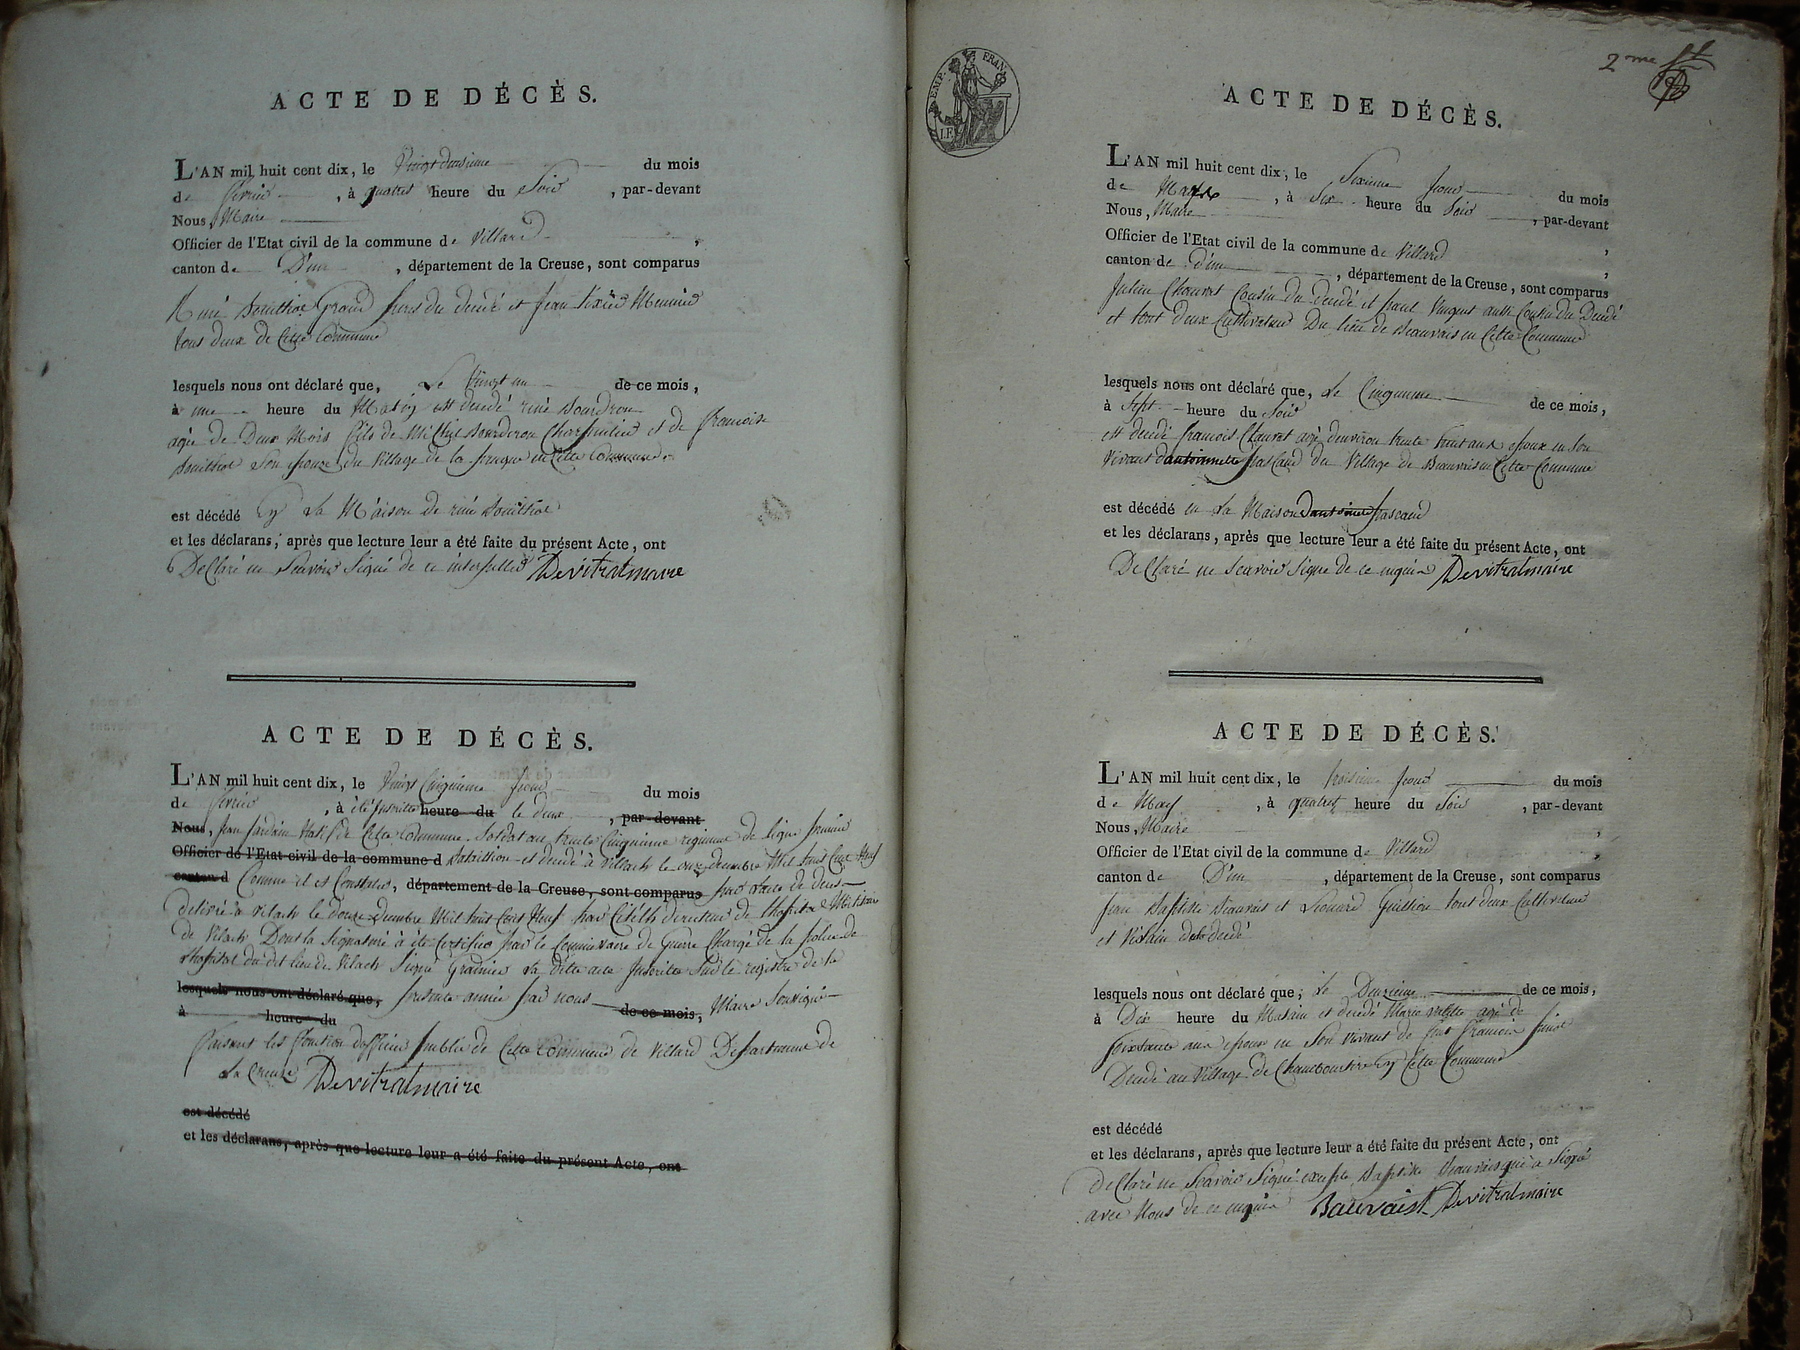 ACTE DE DÉCÈS.
L'AN mil huit cent dix, le Vingt deusieme du mois
de fevrier, à quatres heure du Soir, par-devant
Nous, Maire
Officier de l'Etat civil de la commune de Villard,
canton de D'un, département de la Creuse, sont comparus
Grand pere du décédé et Jean
tous deux de Cette Commune
lesquels nous ont déclaré que, Le Vingt un de ce mois,
à une heure du Matin est décédé rené Bourdron
agée de Deux Mois fils de Michel Bourderon Charpentier et de francoise
Son Epouse du Village de la en Cette Commune.
est décédé En La Maison de rené
et les déclarans, après que lecture leur a été faite du présent Acte, ont
Declaré ne Scavoir Signé de ce interpellés Devitratmaire
ACTE DE DÉCÈS.
L'AN mil huit cent dix, le Vingt Cinquieme Jour du mois
de fevrier, à été Inscritte heure du le deux, par-devant
Nous, Jean Jardain Natif de Cette Commune Soldat au trente Cinquieme regiment de ligne premier
Officier de l'Etat civil de la commune d Batuillion et décédé à Villach le onze decembre Mil huit Cent Neuf
canton d Comme il Est Constaté, département de la Creuse, sont comparus par l'acte de deces
delivré à Vilach le douze decembre Mil huit Cent Neuf par directeur de lhopital Militaire
de Vilach Dont la Signature à été Certifiée par le Commissaire de Guerre Chargé de la police de
lhopital du dit lieu de Vilach Signé Grainier La ditte acte Inscritte Sur le registre de la
lesquels nous ont déclaré que, presente année par nous de ce mois, Maire Soussigné
à heure du
faisant les fonction dofficier public de Cette Commune de Villard Departement de
La Creuse Devitratmaire
est décédé
et les déclarans, après que lecture leur a été faite du présent Acte, ont
2me
EMP. FRAN.
ACTE DE DÉCÈS.
L'AN mil huit cent dix, le Sixieme Jour du mois
de Mars, à Six heure du Soir, par-devant
Nous, Maire
Officier de l'Etat civil de la commune de Villard,
canton de D'un, département de la Creuse, sont comparus
Julien Chauvet Cousin du decédé et paul Vincent aussi Cousin du Decédé
et tout deux Cultivateur Du lieu de Beauvais en Cette Commune
lesquels nous ont déclaré que, Le Cinquieme de ce mois,
à Sept heure du Soir
est decédé francois Chauvet agé denviron trente huit ans Epoux en Son
Vivant dantoinette pascaud du Village de Beauvais en Cette Commune
est décédé en La Maison dantoinette pascaud
et les déclarans, après que lecture leur a été faite du présent Acte, ont
Declaré ne Scavoir Signe de ce enquis Devitratmaire
ACTE DE DÉCÈS.
L'AN mil huit cent dix, le troisieme Jour du mois
de Mars, à quatres heure du Soir, par-devant
Nous, Maire
Officier de l'Etat civil de la commune de Villard,
canton de D'un, département de la Creuse, sont comparus
Jean Baptiste Beauvais et Leonard Guillion tout deux Cultivateur
et Voisin de la decédé
lesquels nous ont déclaré que, Le Deuzieme de ce mois,
à Dix heure du Matin et decédé Marie agé de
Soixante ans Epouse en Son Vivant de feut francois
Decédé au Village de Chamboutive En Cette Commune
est décédé
et les déclarans, après que lecture leur a été faite du présent Acte, ont
declaré ne Scavoir Signé excepté Baptiste Beauvais qui a Signé
avec Nous de ce enquis Bauvaist Devitratmaire